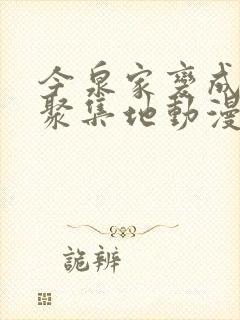 今泉家變成
聚集地動漫
詭辨